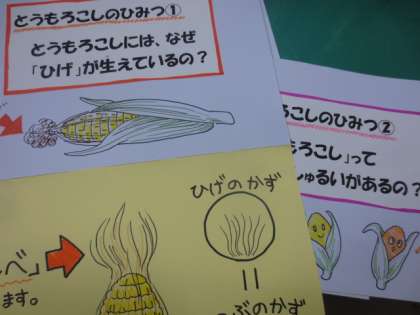 とうもろこしのひみつ①
とうもろこしには、なぜ
「ひげ」が生えているの？
ろこしのひみつ②
もろこし」って
しゅるいがあるの？
ひげのかず
＝
ぶのかず
べ」
ます。